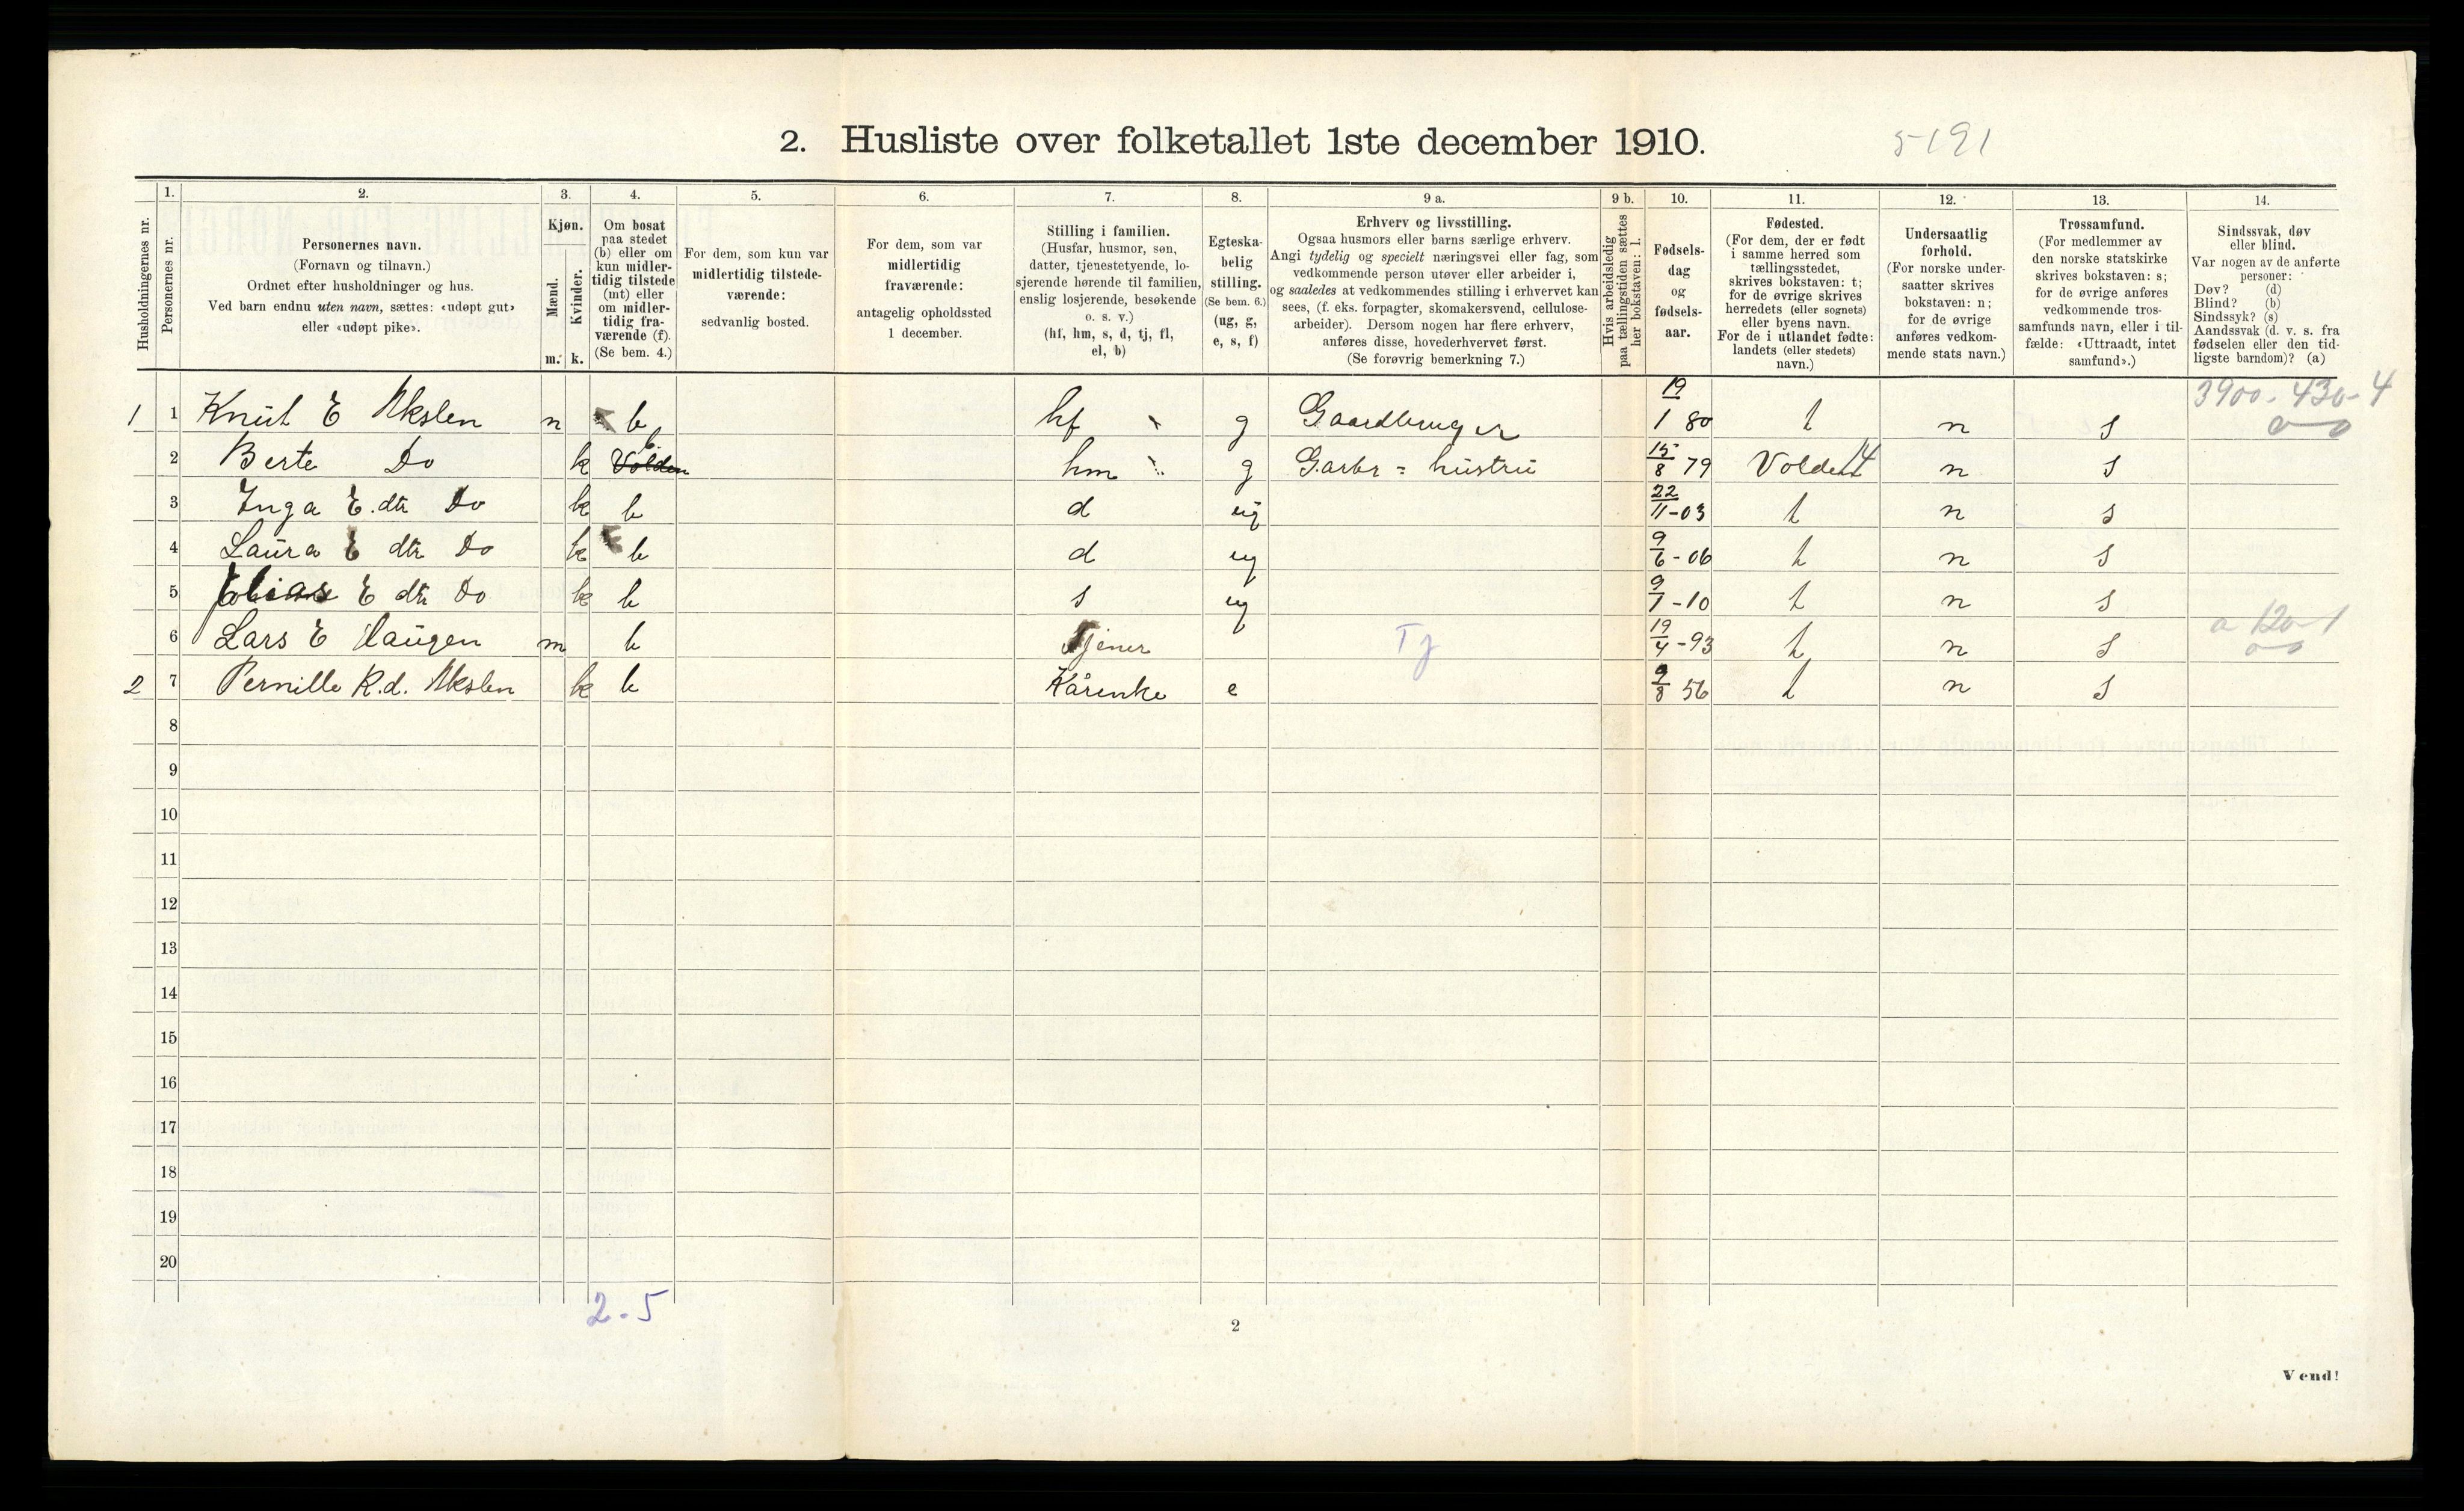 2. Husliste over folketallet 1ste december 1910. 5191
Husholdningernes nr.
1. Personernes nr.
2. Personernes navn.
(Fornavn og tilnavn.)
Ordnet efter husholdninger og hus.
Ved barn endnu uten navn, sættes: «udøpt gut»
eller «udøpt pike».
3. Kjøn.
Mænd. m.
Kvinder. k.
4. Om bosat
paa stedet
(b) eller om
kun midler-
tidig tilstede
(mt) eller
om midler-
tidig fra-
værende (f).
(Se bem. 4.)
5. For dem, som kun var
midlertidig tilstede-
værende:
sedvanlig bosted.
6. For dem, som var
midlertidig
fraværende:
antagelig opholdssted
1 december.
7. Stilling i familien.
(Husfar, husmor, søn,
datter, tjenestetyende, lo-
sjerende hørende til familien,
enslig losjerende, besøkende
o. s. v.)
(hf, hm, s, d, tj, fl,
el, b)
8. Egteska-
belig
stilling.
(Se bem. 6.)
(ug, g,
e, s, f)
9 a. Erhverv og livsstilling.
Ogsaa husmors eller barns særlige erhverv.
Angi tydelig og specielt næringsvei eller fag, som
vedkommende person utøver eller arbeider i,
og saaledes at vedkommendes stilling i erhvervet kan
sees, (f. eks. forpagter, skomakersvend, cellulose-
arbeider). Dersom nogen har flere erhverv,
anføres disse, hovederhvervet først.
(Se forøvrig bemerkning 7.)
9 b. Hvis arbeidsledig
paa tællingstiden sættes
her bokstaven: l.
10. Fødsels-
dag
og
fødsels-
aar.
11. Fødested.
(For dem, der er født
i samme herred som
tællingsstedet,
skrives bokstaven: t;
for de øvrige skrives
herredets (eller sognets)
eller byens navn.
For de i utlandet fødte:
landets (eller stedets)
navn.)
12. Undersaatlig
forhold.
(For norske under-
saatter skrives
bokstaven: n;
for de øvrige
anføres vedkom-
mende stats navn.)
13. Trossamfund.
(For medlemmer av
den norske statskirke
skrives bokstaven: s;
for de øvrige anføres
vedkommende tros-
samfunds navn, eller i til-
fælde: «Uttraadt, intet
samfund».)
14. Sindssvak, døv
eller blind.
Var nogen av de anførte
personer:
Døv? (d)
Blind? (b)
Sindssyk? (s)
Aandssvak (d. v. s. fra
fødselen eller den tid-
ligste barndom)? (a)
3900-430-4
1 1 Knut E Akslen m b hf g Gaardbruger 19/1 80 t n s
2 Berte Do k b Volden hm g Garbr = hustru 15/8 79 Volden 14 n s
3 Inga E. dtr Do k b d ug 22/11-03 t n s
4 Laura E dtr Do k b d ug 9/6-06 t n s
5 E dtr Do k b s ug 9/1-10 t n s
6 Lars E Haugen m b Tjener Tj 19/4-93 t n s a 120-1
2 7 Pernille K.d. Akslen k b Kårenke e 9/8 56 t n s
8
9
10
11
12
13
14
15
16
17
18
19
20
2-5
2
Vend!